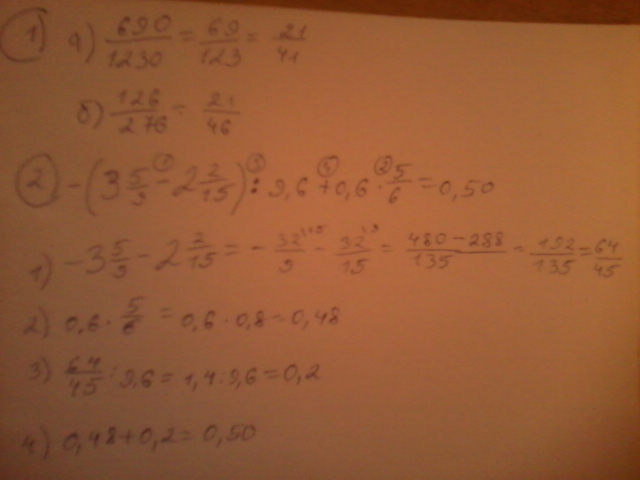 1) а) 690/1230 = 69/123 = 21/41
б) 126/276 = 21/46
2 -(3 5/9 - 2 2/15) : 9,6 + 0,6 · 5/6 = 0,50
1) -3 5/9 - 2 2/15 = - 32/9 - 32/15 = 480-288/135 = 192/135 = 64/45
2) 0,6 · 5/6 = 0,6 · 0,8 = 0,48
3) 64/45 : 9,6 = 1,4 : 9,6 = 0,2
4) 0,48+0,2 = 0,50